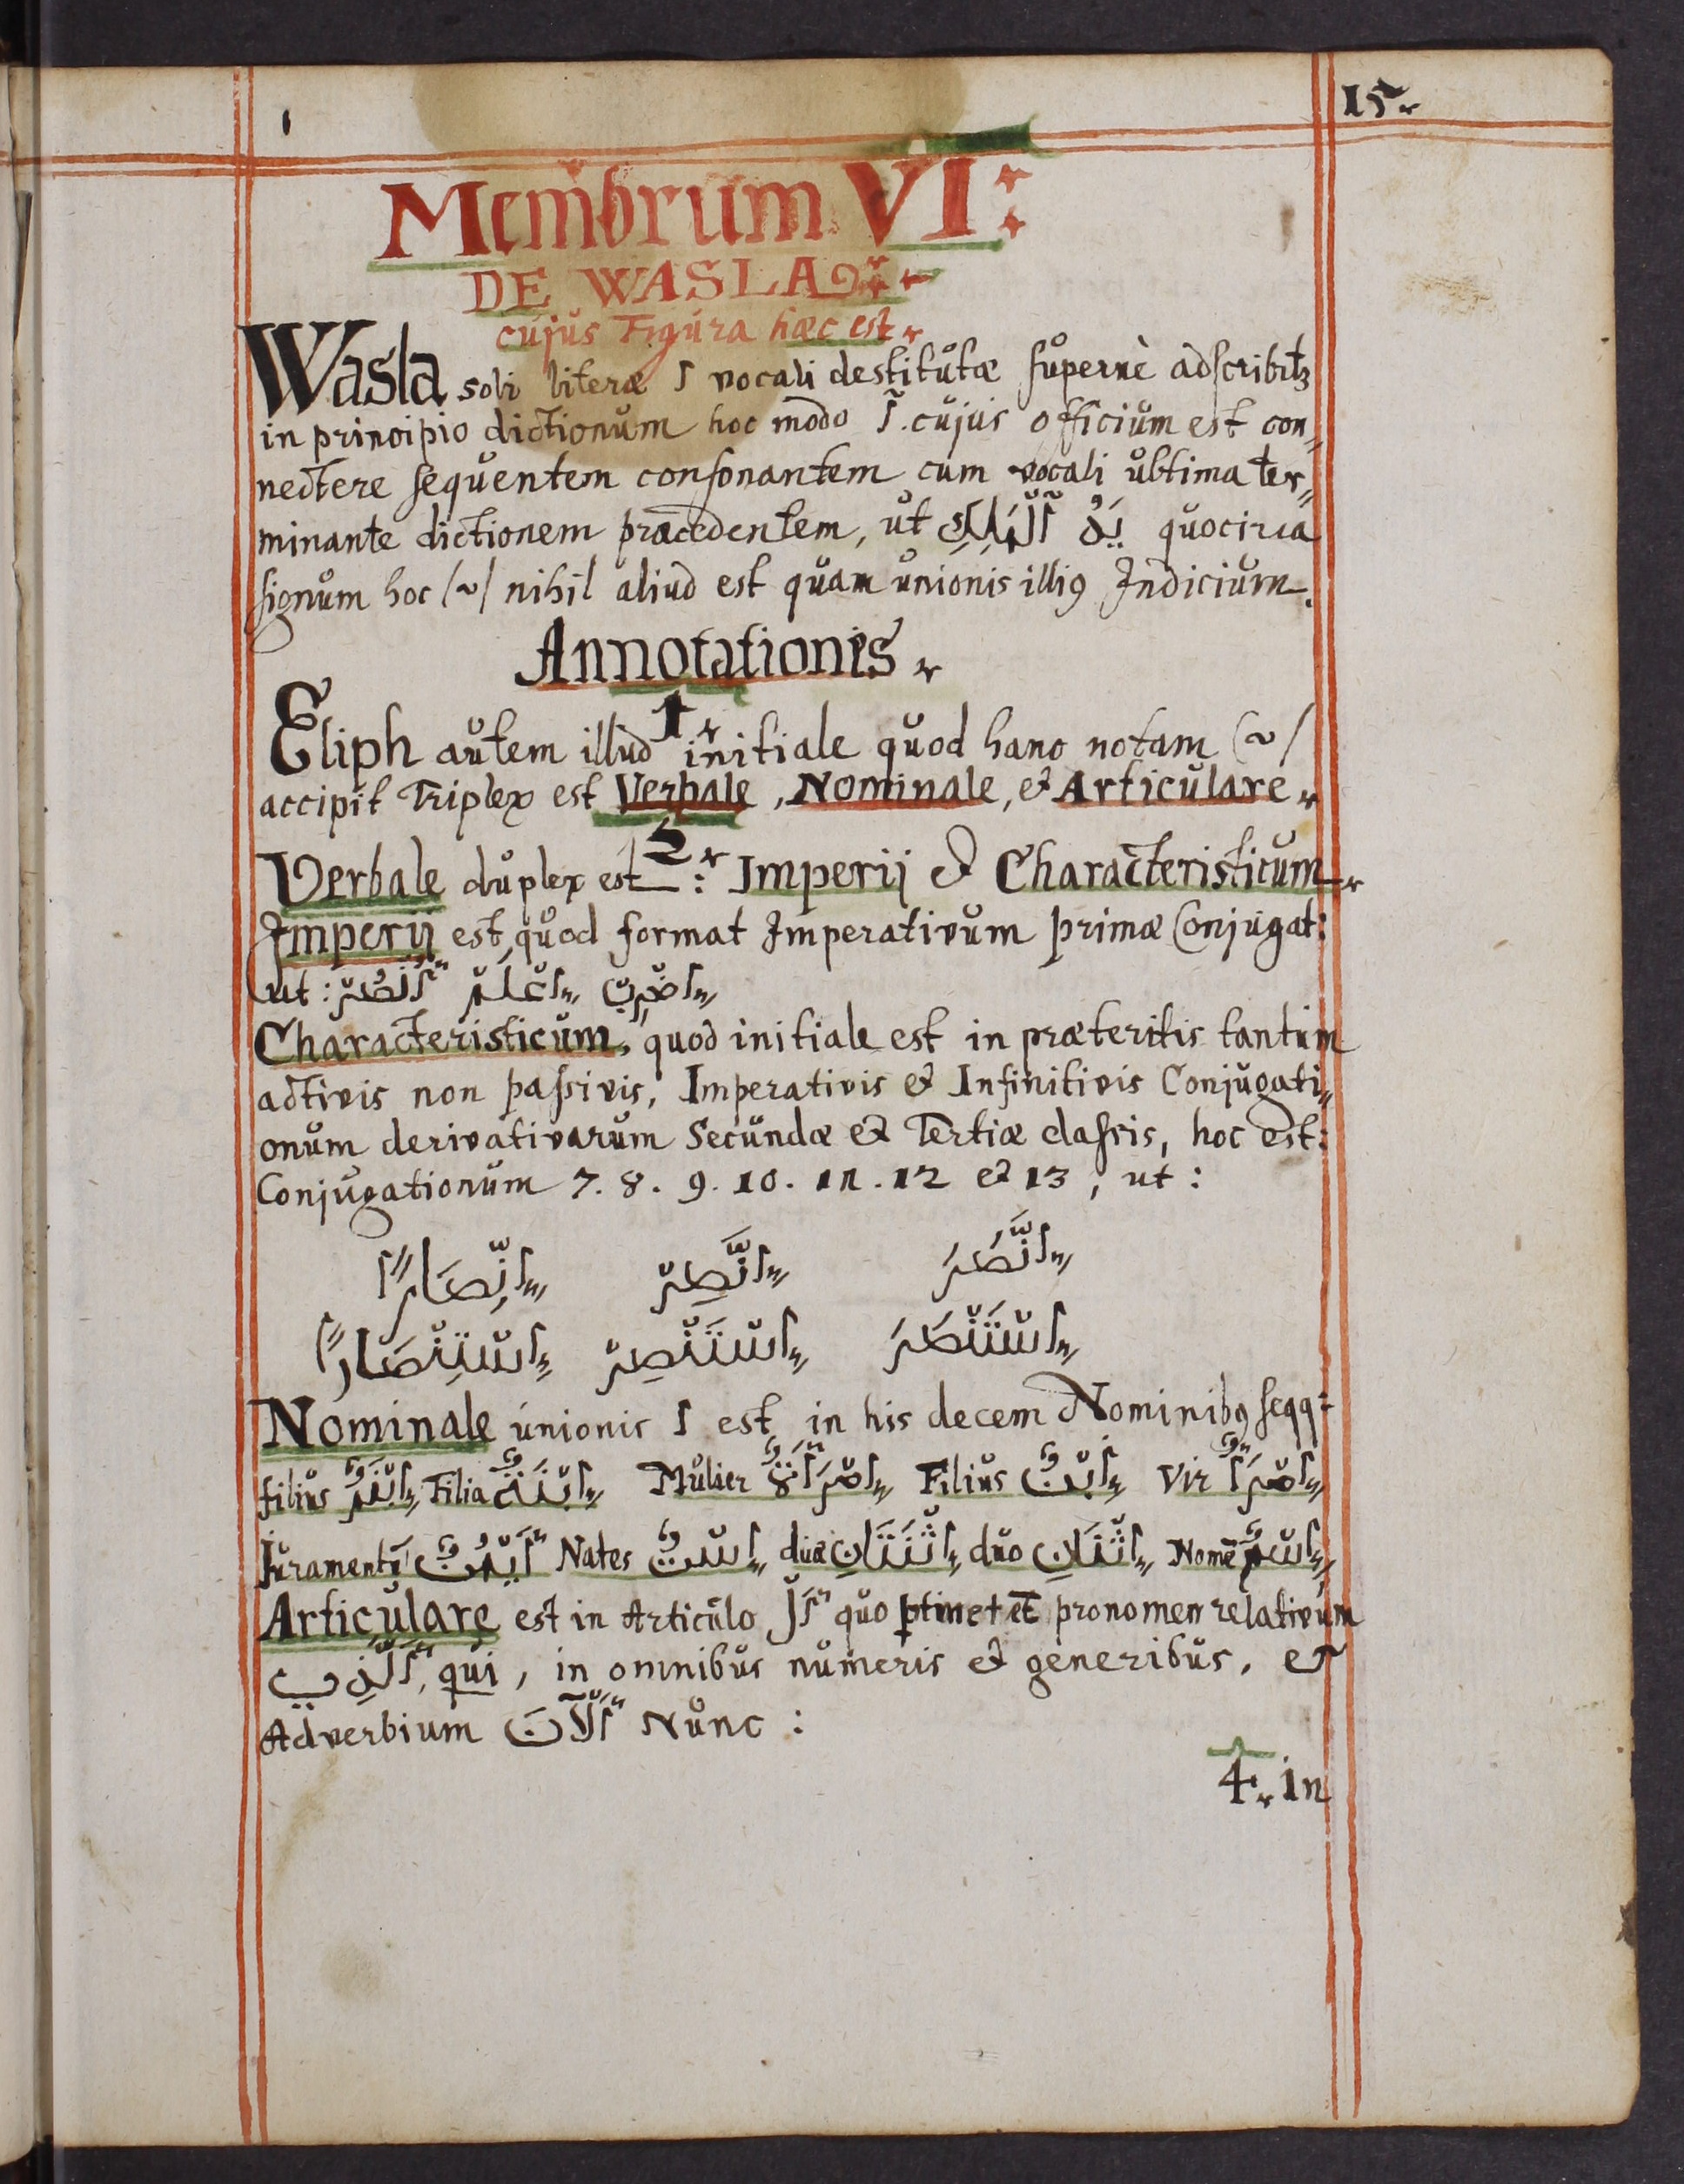 15.
Membrum VI:
DE WASLA
cujus Figura hæc est
Wasla soli literæ ا vocali destitutæ supernè adscribitꝫ
in principio dictionum hoc modo آ. cujus officium est con„
nectere sequentem consonantem cum vocali ultima ter„
minante dictionem præcedentem, ut quocirca
signum hoc (~) nihil aliud est quam unionis illiꝰ Indicium.
Annotationes.
1.
Eliph autem illud initiale quod hanc notam (~)
accipit Triplex est Verbale, Nominale, et Articulare.
2.
Verbale duplex est : Imperij et Characteristicum
Imperij est quod format Imperativum primæ Conjugat:
ut: اُنْصُرْ اِعْلَمْ اِضْرِبْ
Characteristicum, quod initiale est in præteritis tantum
activis non passivis, Imperativis et Infinitivis Conjugati„
onum derivativarum Secundæ et Tertiæ classis, hoc est:
Conjugationum 7. 8. 9. 10. 11. 12 et 13, ut:
اِنَّصَرَ اِنَّصِرْ اِنِّصَارًا
اِسْتَنْصَرَ اِسْتَنْصِرْ اِسْتِنْصَارًا
Nominale unionis ا est in his decem Nominibꝰ seqq:
filius اِبْنَمٌ Filia اِبْنَةٌ Mulier اِمْرَأَةٌ Filius اِبْنٌ Vir اِمْرَأٌ
Juramentū أَيْمُنٌ Nates اِسْتٌ duæ اِثْنَتَانِ duo اِثْنَانِ Nomē اِسْمٌ
Articulare est in Articulo اَلْ quo ꝑtinet et̄ pronomen relativum
اَلَّذِي, qui, in omnibus numeris et generibus, et
Adverbium اَلْآنَ Nunc :
4. in